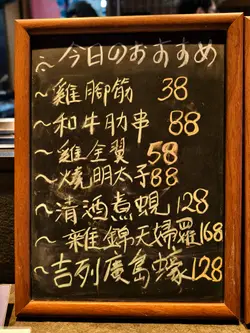 ~今日のおすすめ
~雞腳筋 38
~和牛肋串 88
~雞全翼 58
~燒明太子 88
~清酒煮蜆 128
~雜錦天婦羅 168
~吉列廣島蠔 128